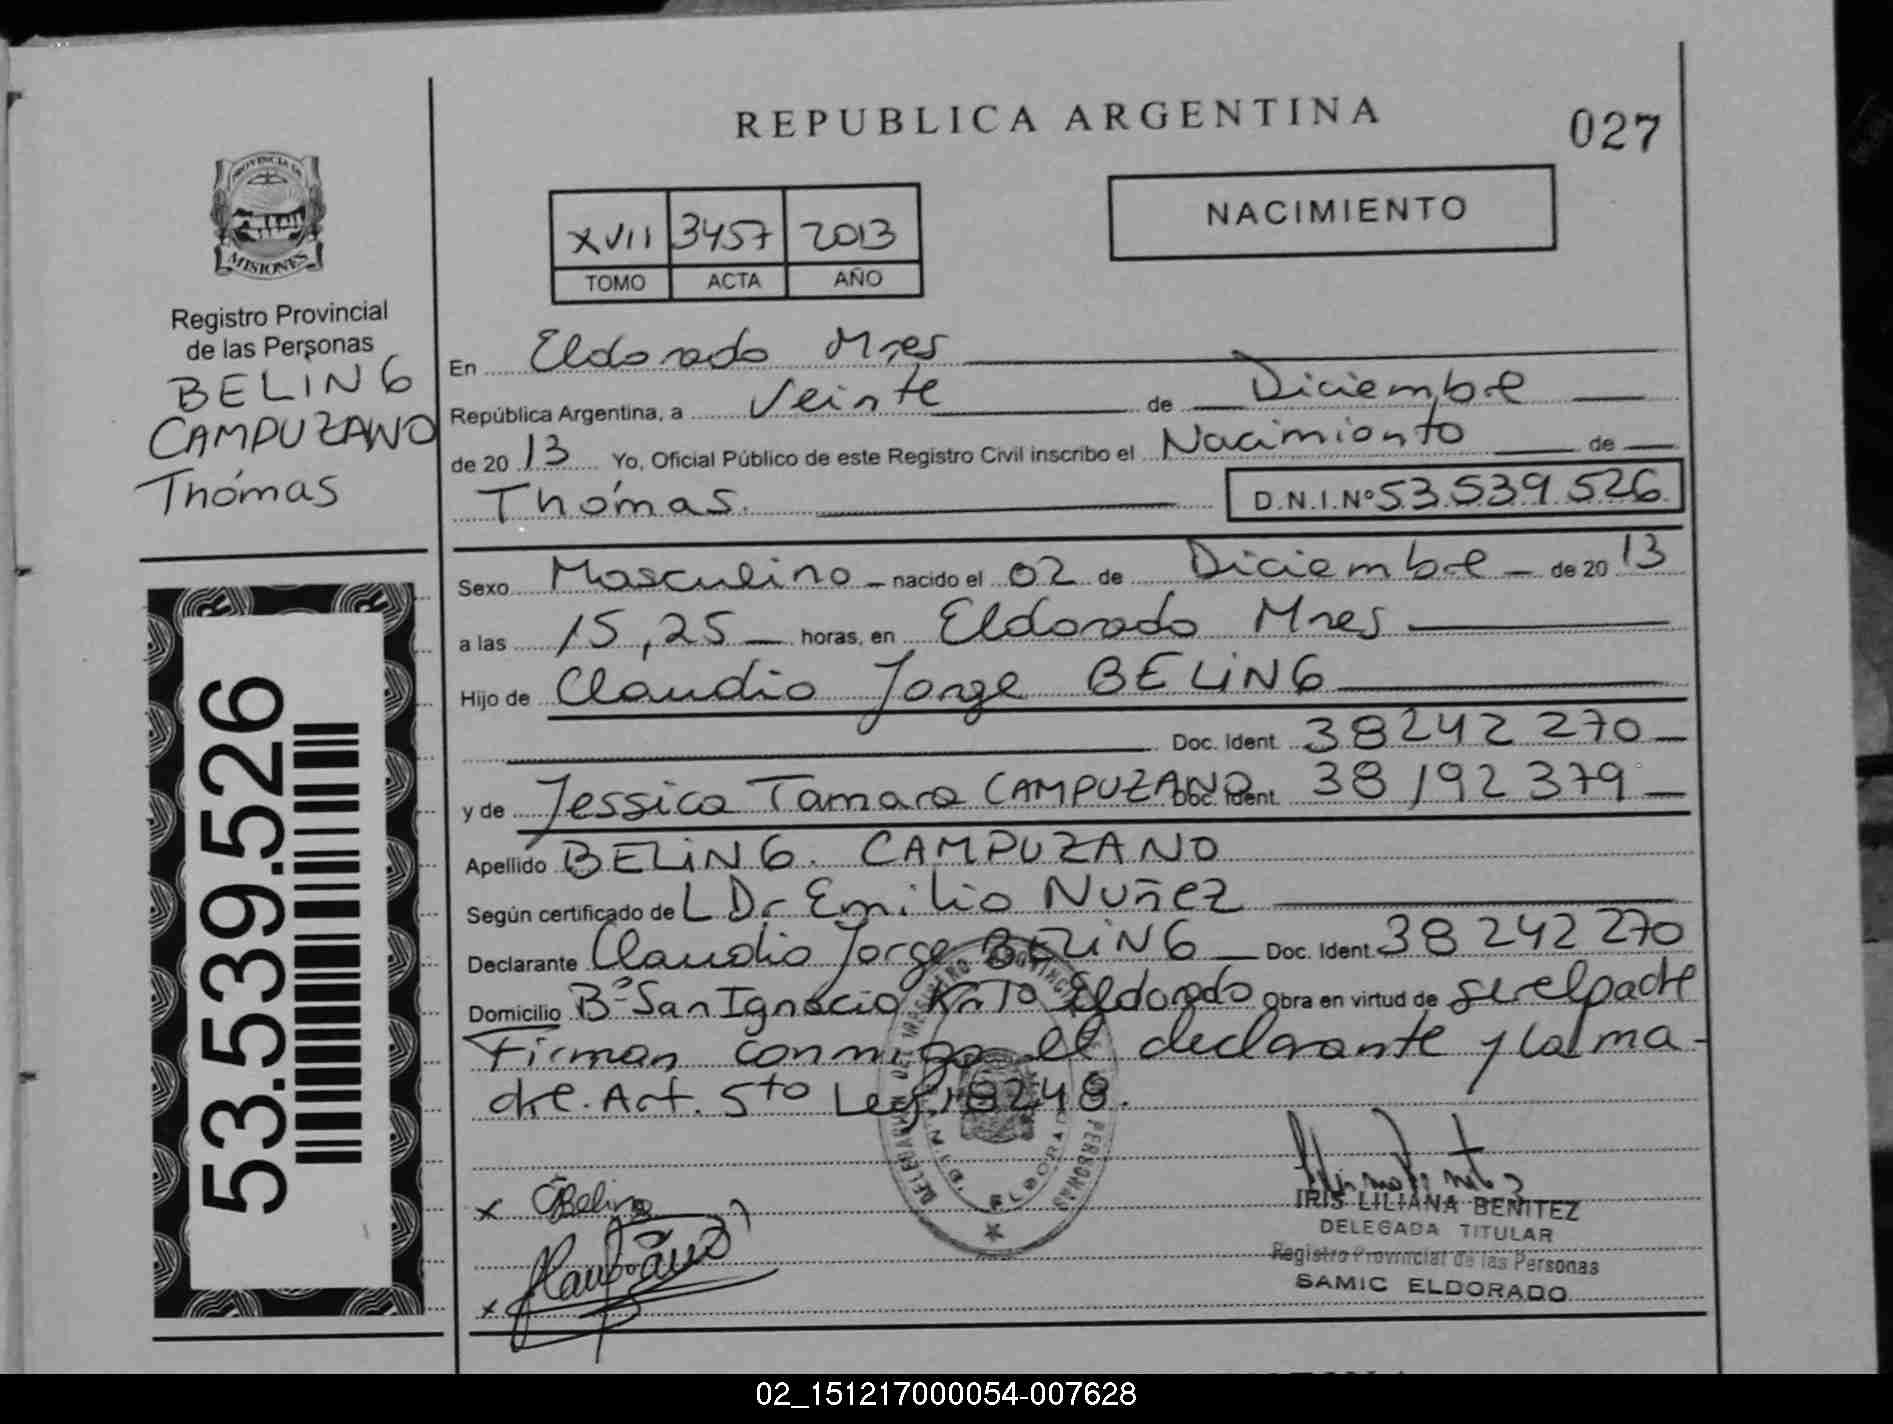 REPUBLICA ARGENTINA
027
NACIMIENTO
XVII 3457 2013
TOMO ACTA AÑO
PROVINCIA DE
MISIONES
Registro Provincial
de las Personas
BELING
CAMPUZANO
Thómas
En Eldorado Mnes
República Argentina, a Veinte de Diciembre
de 20 13 Yo, Oficial Público de este Registro Civil inscribo el Nacimiento de
Thómas. D.N.I.Nº 53.539.526
Sexo Masculino nacido el 02 de Diciembre de 20 13
a las 15,25 horas, en Eldorado Mnes
Hijo de Claudio Jorge BELING
Doc. Ident. 38242270
y de Jessica Tamara CAMPUZANO Doc. Ident. 38192379
Apellido BELING. CAMPUZANO
Según certificado de L Dr Emilio Nuñez
Declarante Claudio Jorge BELING Doc. Ident. 38242270
Domicilio Bº San Ignacio Eldorado Obra en virtud de ser el padre
Firman conmigo el declarante y la ma-
dre. Art. 5to Ley 18248.
53.539.526
x CBeling
x
REGISTRO PROVINCIAL DE PERSONAS
ELDORADO
IRIS LILIANA BENITEZ
DELEGADA TITULAR
Registro Provincial de las Personas
SAMIC ELDORADO
02_151217000054-007628